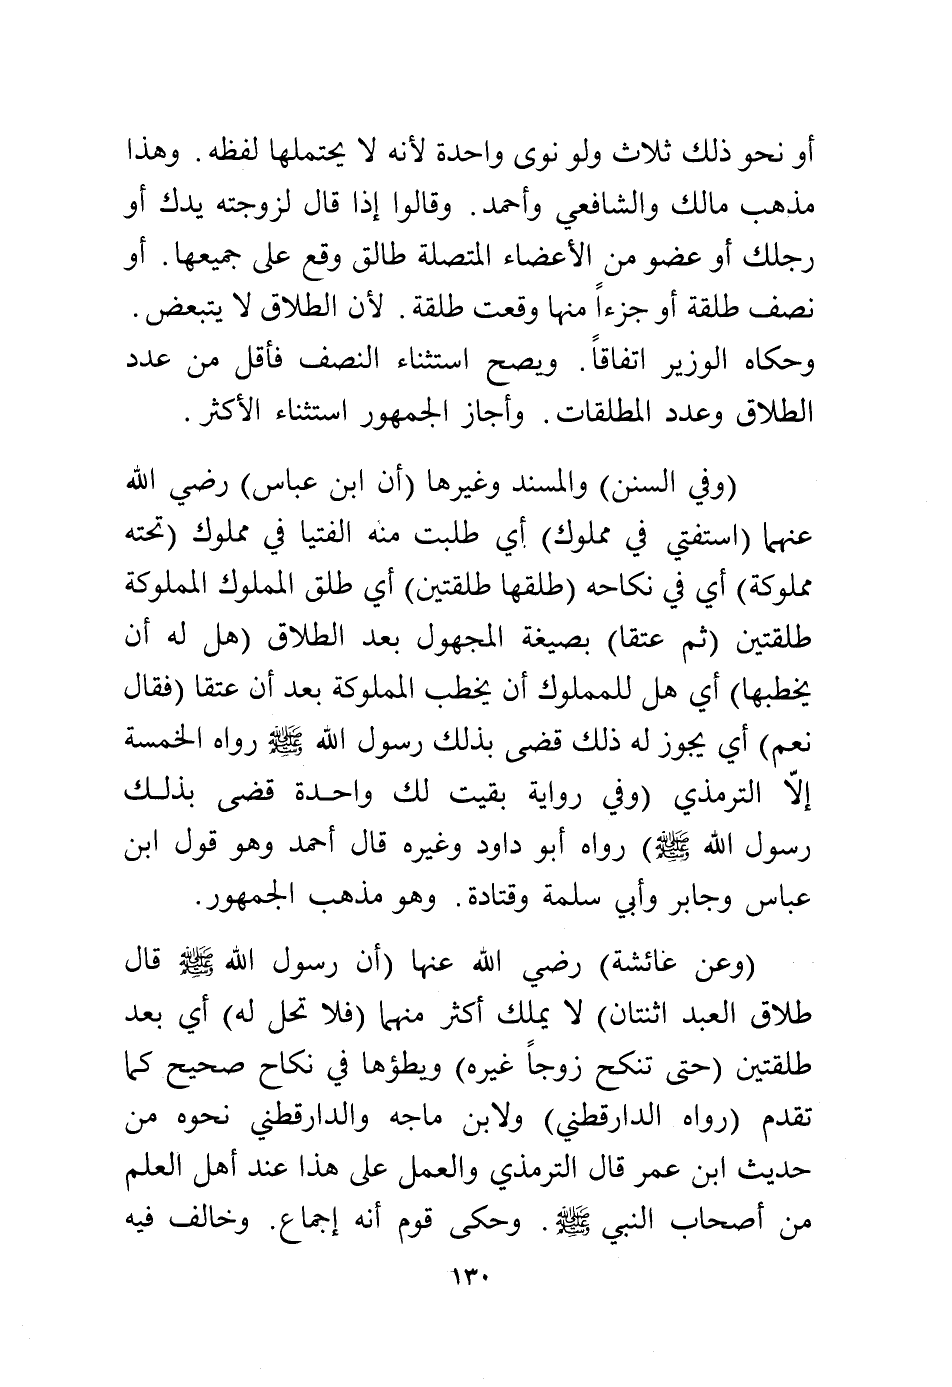 أو نحو ذلك ثلاث ولو نوى واحدة لأنه لا يحتملها لفظه. وهذا
مذهب مالك والشافعي وأحمد. وقالوا إذا قال لزوجته يدك أو
رجلك أو عضو من الأعضاء المتصلة طالق وقع على جميعها. أو
نصف طلقة أو جزءاً منها وقعت طلقة. لأن الطلاق لا يتبعض.
وحكاه الوزير اتفاقاً. ويصح استثناء النصف فأقل من عدد
الطلاق وعدد المطلقات. وأجاز الجمهور استثناء الأكثر.
(وفي السنن) والمسند وغيرها (أن ابن عباس) رضي الله
عنهما (استفتي في مملوك) أي طلبت منه الفتيا في مملوك (تحته
مملوكة) أي في نكاحه (طلقها طلقتين) أي طلق المملوك المملوكة
طلقتين (ثم عتقا) بصيغة المجهول بعد الطلاق (هل له أن
يخطبها) أي هل للمملوك أن يخطب المملوكة بعد أن عتقا (فقال
نعم) أي يجوز له ذلك قضى بذلك رسول الله ﷺ رواه الخمسة
إلّا الترمذي (وفي رواية بقيت لك واحدة قضى بذلك
رسول الله ﷺ) رواه أبو داود وغيره قال أحمد وهو قول ابن
عباس وجابر وأبي سلمة وقتادة. وهو مذهب الجمهور.
(وعن عائشة) رضي الله عنها (أن رسول الله ﷺ قال
طلاق العبد اثنتان) لا يملك أكثر منهما (فلا تحل له) أي بعد
طلقتين (حتى تنكح زوجاً غيره) ويطؤها في نكاح صحيح كما
تقدم (رواه الدارقطني) ولابن ماجه والدارقطني نحوه من
حديث ابن عمر قال الترمذي والعمل على هذا عند أهل العلم
من أصحاب النبي ﷺ. وحكى قوم أنه إجماع. وخالف فيه
١٣٠